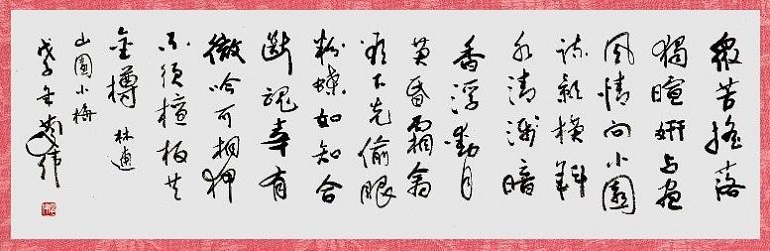 眾芳搖落
獨暄妍占盡
風情向小園
疏影橫斜
水清淺暗
香浮動月
黃昏霜禽
欲下先偷眼
粉蝶如知合
斷魂幸有
微吟可相狎
不須檀板共
金樽 林逋
山園小梅
戊子冬